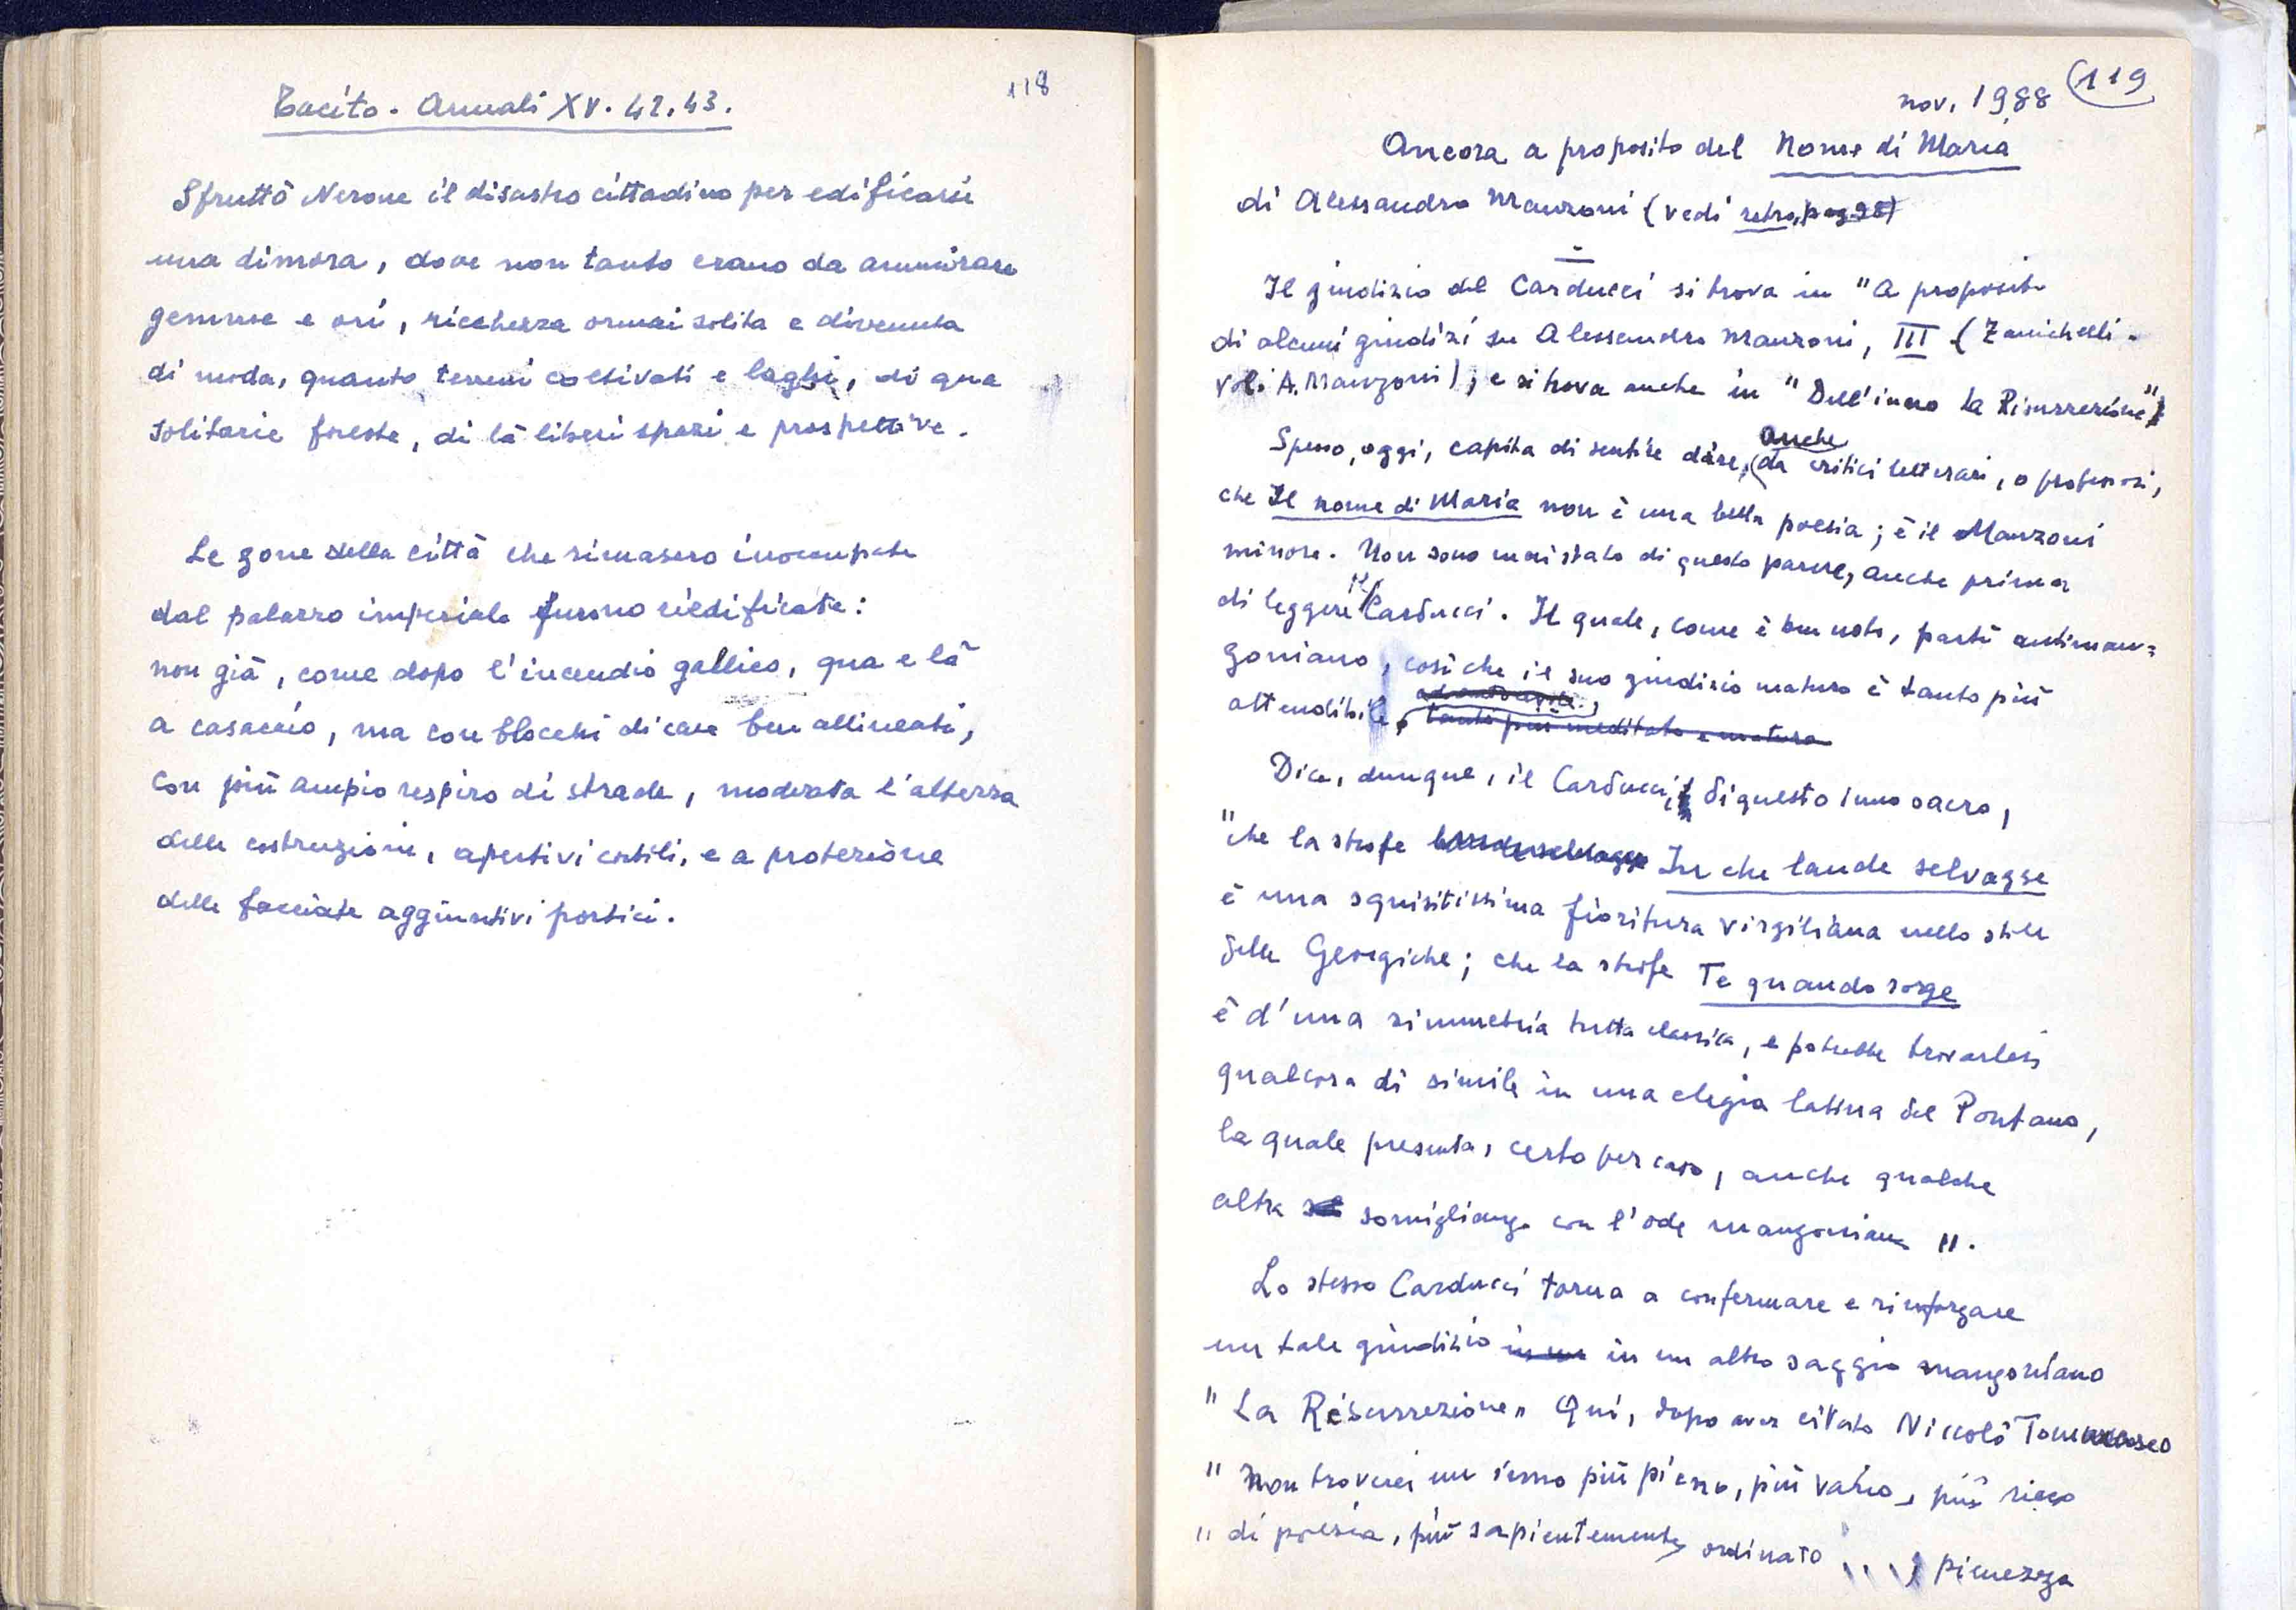 118
Tacito - Annali XV. 42. 43.
Sfruttò Nerone il disastro cittadino per edificarsi
una dimora, dove non tanto erano da ammirare
gemme e ori, ricchezza ormai solita e divenuta
di moda, quanto terreni coltivati e laghi, di qua
solitarie foreste, di là liberi spazi e prospettive.
Le zone della città che rimasero inoccupate
dal palazzo imperiale furono riedificate:
non già, come dopo l'incendio gallico, qua e là
a casaccio, ma con blocchi di case ben allineati,
con più ampio respiro di strade, moderata l'altezza
delle costruzioni, apertivi cortili, e a protezione
delle facciate aggiuntivi portici.
nov. 1988 119
Ancora a proposito del Nome di Maria
di Alessandro Manzoni (vedi retro, pag 98)
Il giudizio del Carducci si trova in "A proposito
di alcuni giudizi su Alessandro Manzoni, III (Zanichelli -
vol. A. Manzoni); e si trova anche in "Dell'inno la Risurrezione")
Spesso, oggi, capita di sentire dire, anche da critici letterari, o professori,
che Il nome di Maria non è una bella poesia; è il Manzoni
minore. Non sono mai stato di questo parere, anche prima
di leggere il Carducci. Il quale, come è ben noto, partì antiman=
zoniano, così che il suo giudizio maturo è tanto più
attendibile, tanto più meditato e maturo
Dice, dunque, il Carducci, di questo inno sacro,
"che la strofe In che lande selvagge
è una squisitissima fioritura virgiliana nello stile
delle Georgiche; che la strofe Te quando sorge
è d'una simmetria tutta classica, e potrebbe trovarlesi
qualcosa di simile in una elegia latina del Pontano,
la quale presenta, certo per caso, anche qualche
altra somiglianza con l'ode manzoniana ".
Lo stesso Carducci torna a confermare e rinforzare
un tale giudizio in un in un altro saggio manzoniano
"La Risurrezione" Qui, dopo aver citato Niccolò Tommaseo
"Non troverei un inno più pieno, più vario, più ricco
" di poesia, più sapientemente ordinato ...., pienezza